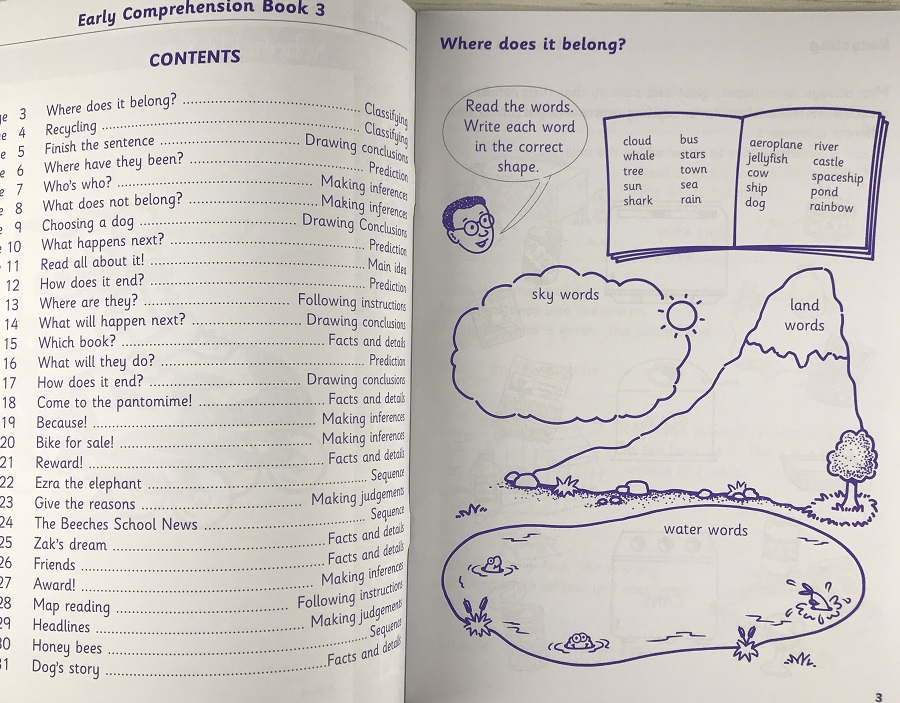 Early Comprehension Book 3
CONTENTS
3 Where does it belong? Classifying
4 Recycling Classifying
5 Finish the sentence Drawing conclusions
6 Where have they been? Prediction
7 Who's who? Making inferences
8 What does not belong? Making inferences
9 Choosing a dog Drawing Conclusions
10 What happens next? Prediction
11 Read all about it! Main idea
12 How does it end? Prediction
13 Where are they? Following instructions
14 What will happen next? Drawing conclusions
15 Which book? Facts and details
16 What will they do? Prediction
17 How does it end? Drawing conclusions
18 Come to the pantomime! Facts and details
19 Because! Making inferences
20 Bike for sale! Making inferences
21 Reward! Facts and details
22 Ezra the elephant Sequence
23 Give the reasons Making judgements
24 The Beeches School News Sequence
25 Zak's dream Facts and details
26 Friends Facts and details
27 Award! Making inferences
28 Map reading Following instructions
29 Headlines Making judgements
30 Honey bees Sequence
31 Dog's story Facts and details
Where does it belong?
Read the words.
Write each word
in the correct
shape.
cloud bus
whale stars
tree town
sun sea
shark rain
aeroplane river
jellyfish castle
cow spaceship
ship pond
dog rainbow
sky words
land
words
water words
3